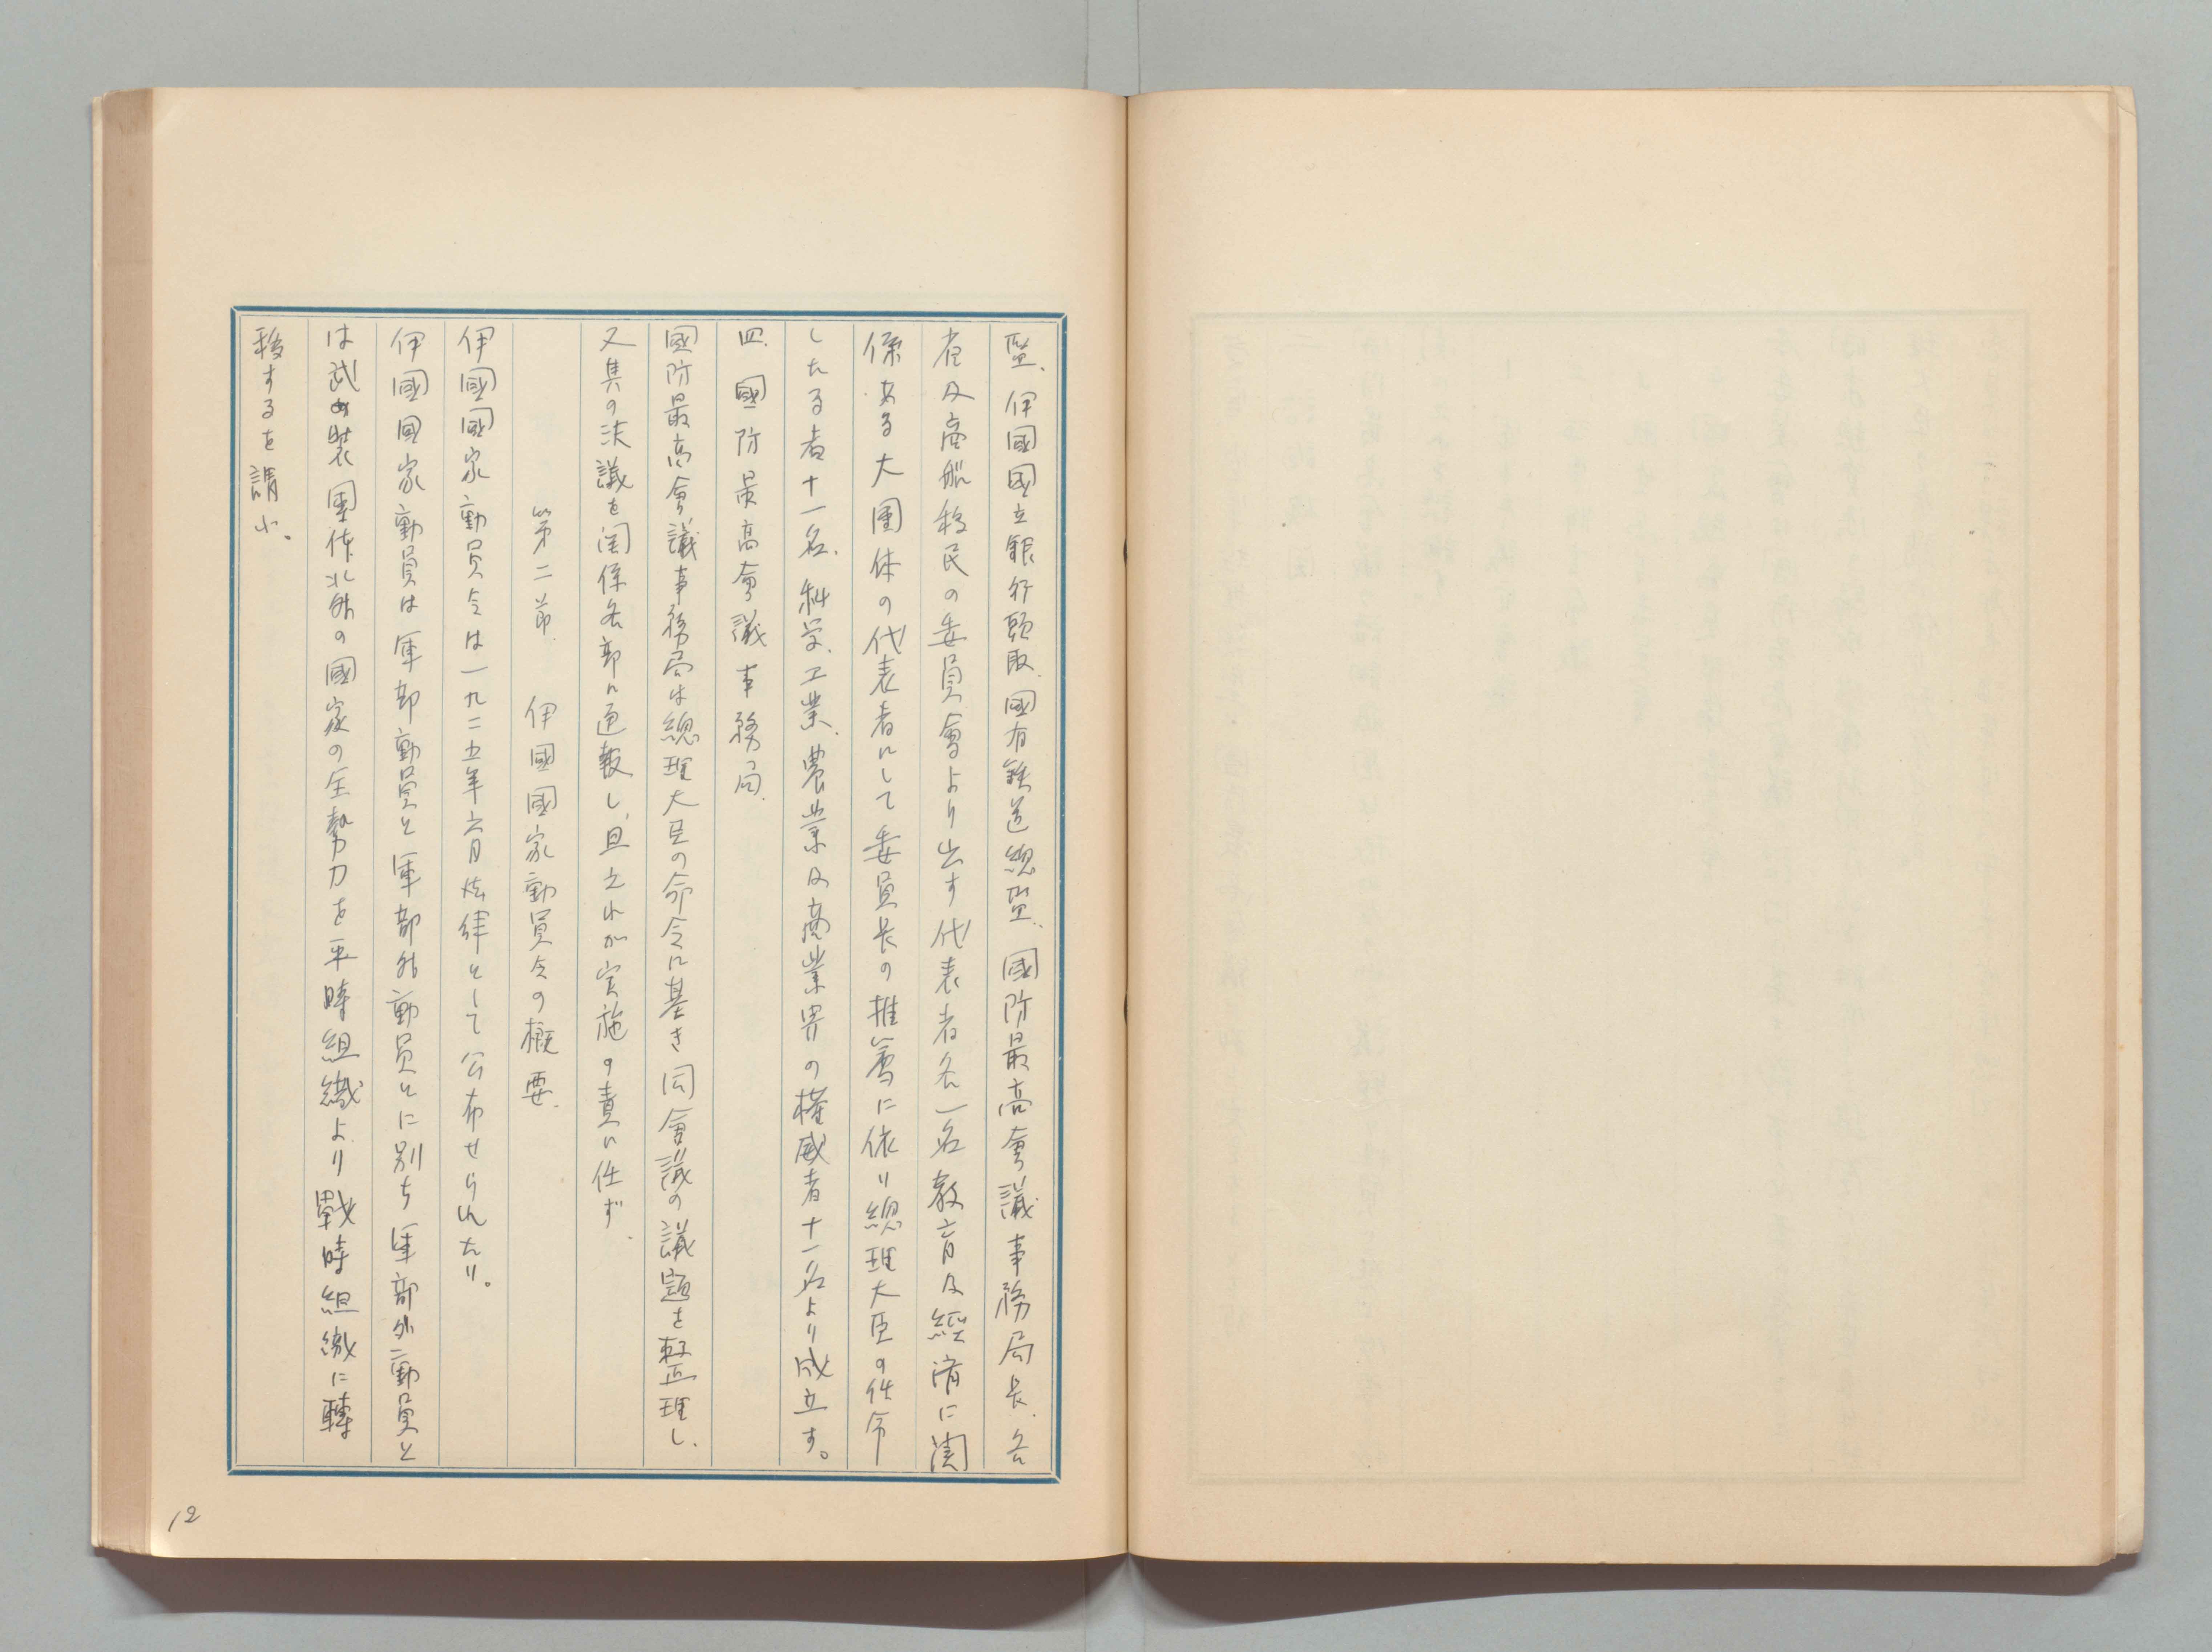 監、伊國國立銀行頭取、國有鉄道總監、國防最高會議事務局長、各
省及商船移民の委員會より出す代表者各一名教育及經済に関
係ある大團体の代表者にして委員長の推薦に依り總理大臣の任命
したる者十一名、科学、工業、農業及商業界の権威者十一名より成立す。
四、國防最高會議事務局、
國防最高會議事務局は總理大臣の命令に基き同會議の議題を整理し、
又其の決議を関係各部に通報し、且之れが実施の責に任ず、
第二節、伊國國家動員令の概要、
伊國國家動員令は一九二五年六月法律として公布せられたり。
伊國國家動員は軍部動員と軍部外動員とに別ち軍部外動員と
は武装團体以外の國家の全勢力を平時組織より戰時組織に轉
移するを謂ふ。
12